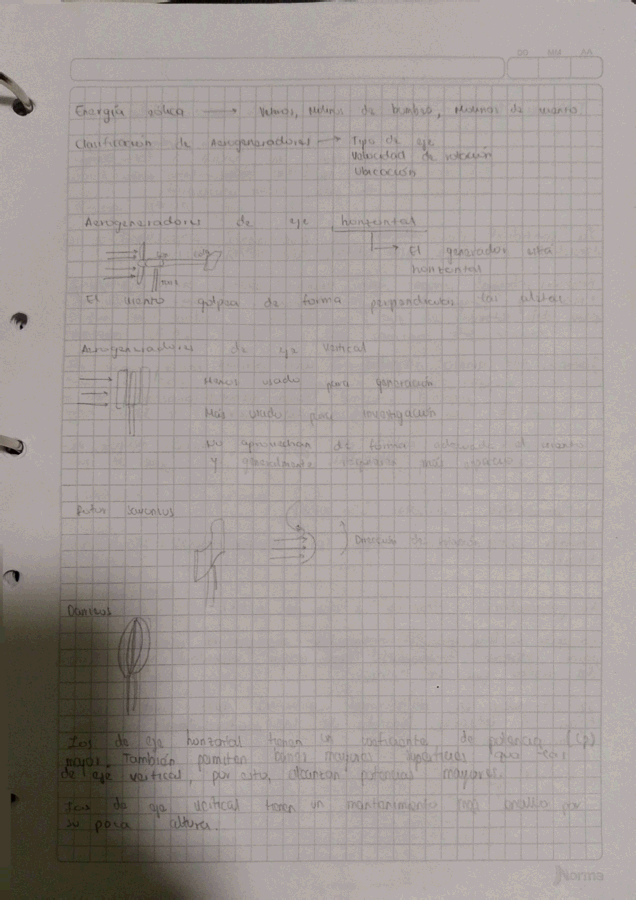 DD MM AA
Energía eólica → Veleros, Molinos de bombeo, Molinos de viento
Clasificación de Aerogeneradores → Tipo de eje
Velocidad de rotación
Ubicación
Aerogeneradores de eje horizontal
→ El generador esta
horizontal
El viento golpea de forma perpendicular las
Aerogeneradores de eje Vertical
Menos usado para generación
Más usado para investigación
No aprovechan de forma adecuada el viento
y generalmente requiere más espacio
Rotor Savonius
Dirección de
Darrieus
Los de eje horizontal tienen un coeficiente de potencia (cp)
mayor. También permiten barrer mayores superficies que los
de eje vertical, por esto, alcanzan potencias mayores.
Los de eje vertical tienen un mantenimiento más sencillo por
su poca altura.
Norma